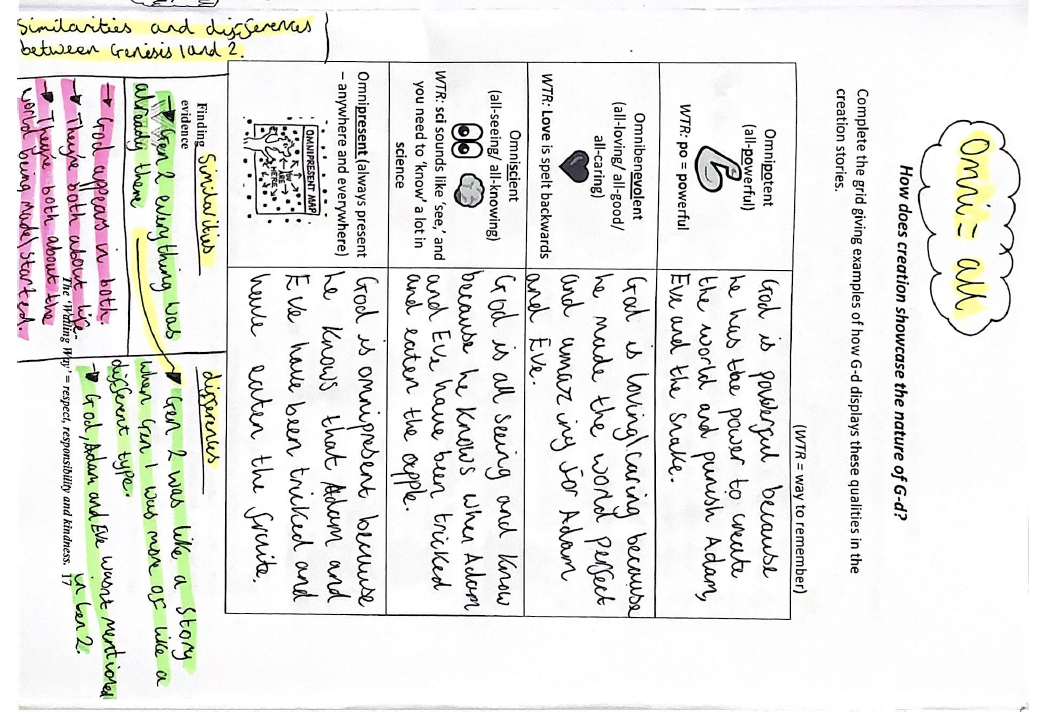 Omni = all
How does creation showcase the nature of G-d?
Complete the grid giving examples of how G-d displays these qualities in the
creation stories.
(WTR = way to remember)
Omnipotent
(all-powerful)
WTR: po = powerful
God is powerful because
he has the power to create
the world and punish Adam,
Eve and the Snake.
Omnibenevolent
(all-loving/ all-good/
all-caring)
WTR: Love is spelt backwards
God is loving/caring because
he made the world perfect
and amazing for Adam
and Eve.
Omniscient
(all-seeing/ all-knowing)
WTR: sci sounds like 'see', and
you need to 'know' a lot in
science
God is all seeing and know
because he knows when Adam
and Eve have been tricked
and eaten the apple.
Omnipresent (always present
– anywhere and everywhere)
OMNIPRESENT MAP
YOU
ARE
HERE
God is omnipresent because
he knows that Adam and
Eve have been tricked and
have eaten the fruite.
Similarities and differences
between Genesis 1 and 2.
Finding
evidence
Similarities
→ Gen 2 everything was
already there
→ God appears in both.
→ They're both about life
→ They're both about the
world being made/started.
differences
→ Gen 2 was like a story
when Gen 1 was more of like a
different type.
→ God, Adam and Eve wasnt mentioned
in Gen 2.
The 'Watling Way' = respect, responsibility and kindness. 17